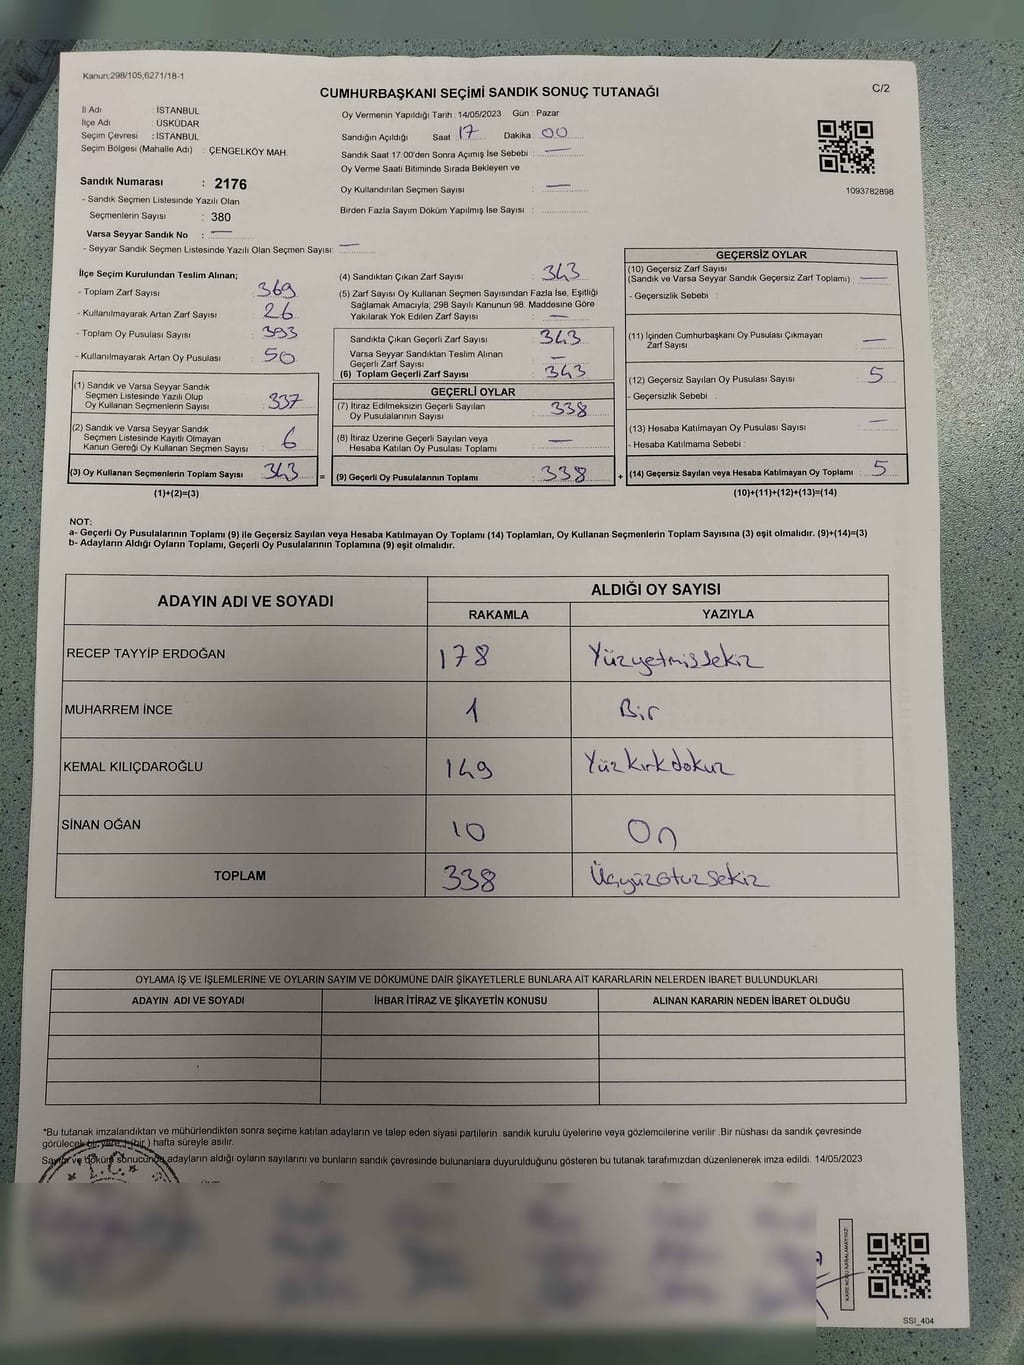 Kanun;298/105;6271/18-1
C/2
CUMHURBAŞKANI SEÇİMİ SANDIK SONUÇ TUTANAĞI
İl Adı : İSTANBUL
İlçe Adı : ÜSKÜDAR
Seçim Çevresi : İSTANBUL
Seçim Bölgesi (Mahalle Adı) : ÇENGELKÖY MAH.
Sandık Numarası : 2176
- Sandık Seçmen Listesinde Yazılı Olan
Seçmenlerin Sayısı : 380
Varsa Seyyar Sandık No : —
- Seyyar Sandık Seçmen Listesinde Yazılı Olan Seçmen Sayısı: —
Oy Vermenin Yapıldığı Tarih : 14/05/2023 Gün : Pazar
Sandığın Açıldığı Saat 17 Dakika : 00
Sandık Saat 17:00'den Sonra Açımış İse Sebebi : —
Oy Verme Saati Bitiminde Sırada Bekleyen ve
Oy Kullandırılan Seçmen Sayısı : —
Birden Fazla Sayım Döküm Yapılmış İse Sayısı :
1093782898
İlçe Seçim Kurulundan Teslim Alınan;
- Toplam Zarf Sayısı : 369
- Kullanılmayarak Artan Zarf Sayısı : 26
- Toplam Oy Pusulası Sayısı : 393
- Kullanılmayarak Artan Oy Pusulası : 50
(1) Sandık ve Varsa Seyyar Sandık
Seçmen Listesinde Yazılı Olup
Oy Kullanan Seçmenlerin Sayısı : 337
(2) Sandık ve Varsa Seyyar Sandık
Seçmen Listesinde Kayıtlı Olmayan
Kanun Gereği Oy Kullanan Seçmen Sayısı : 6
(3) Oy Kullanan Seçmenlerin Toplam Sayısı : 343
=
(1)+(2)=(3)
(4) Sandıktan Çıkan Zarf Sayısı : 343
(5) Zarf Sayısı Oy Kullanan Seçmen Sayısından Fazla İse, Eşitliği
Sağlamak Amacıyla; 298 Sayılı Kanunun 98. Maddesine Göre
Yakılarak Yok Edilen Zarf Sayısı : —
Sandıkta Çıkan Geçerli Zarf Sayısı : 343
Varsa Seyyar Sandıktan Teslim Alınan
Geçerli Zarf Sayısı : —
(6) Toplam Geçerli Zarf Sayısı : 343
GEÇERLİ OYLAR
(7) İtiraz Edilmeksizin Geçerli Sayılan
Oy Pusulalarının Sayısı : 338
(8) İtiraz Üzerine Geçerli Sayılan veya
Hesaba Katılan Oy Pusulası Toplamı : —
(9) Geçerli Oy Pusulalarının Toplamı : 338
+
GEÇERSİZ OYLAR
(10) Geçersiz Zarf Sayısı
(Sandık ve Varsa Seyyar Sandık Geçersiz Zarf Toplamı) : —
- Geçersizlik Sebebi :
(11) İçinden Cumhurbaşkanı Oy Pusulası Çıkmayan
Zarf Sayısı : —
(12) Geçersiz Sayılan Oy Pusulası Sayısı : 5
- Geçersizlik Sebebi :
(13) Hesaba Katılmayan Oy Pusulası Sayısı : —
- Hesaba Katılmama Sebebi :
(14) Geçersiz Sayılan veya Hesaba Katılmayan Oy Toplamı : 5
(10)+(11)+(12)+(13)=(14)
NOT:
a- Geçerli Oy Pusulalarının Toplamı (9) ile Geçersiz Sayılan veya Hesaba Katılmayan Oy Toplamı (14) Toplamları, Oy Kullanan Seçmenlerin Toplam Sayısına (3) eşit olmalıdır. (9)+(14)=(3)
b- Adayların Aldığı Oyların Toplamı, Geçerli Oy Pusulalarının Toplamına (9) eşit olmalıdır.
ADAYIN ADI VE SOYADI
ALDIĞI OY SAYISI
RAKAMLA YAZIYLA
RECEP TAYYİP ERDOĞAN 178 Yüzyetmişsekiz
MUHARREM İNCE 1 Bir
KEMAL KILIÇDAROĞLU 149 Yüzkırkdokuz
SİNAN OĞAN 10 On
TOPLAM 338 Üçyüzotuzsekiz
OYLAMA İŞ VE İŞLEMLERİNE VE OYLARIN SAYIM VE DÖKÜMÜNE DAİR ŞİKAYETLERLE BUNLARA AİT KARARLARIN NELERDEN İBARET BULUNDUKLARI
ADAYIN ADI VE SOYADI İHBAR İTİRAZ VE ŞİKAYETİN KONUSU ALINAN KARARIN NEDEN İBARET OLDUĞU
*Bu tutanak imzalandıktan ve mühürlendikten sonra seçime katılan adayların ve talep eden siyasi partilerin sandık kurulu üyelerine veya gözlemcilerine verilir .Bir nüshası da sandık çevresinde
görülecek bir yere 1 (bir ) hafta süreyle asılır.
Sayım ve döküm sonucunda adayların aldığı oyların sayılarını ve bunların sandık çevresinde bulunanlara duyurulduğunu gösteren bu tutanak tarafımızdan düzenlenerek imza edildi. 14/05/2023
T.C.
KARE KODU KARALAMAYINIZ!
SSI_404